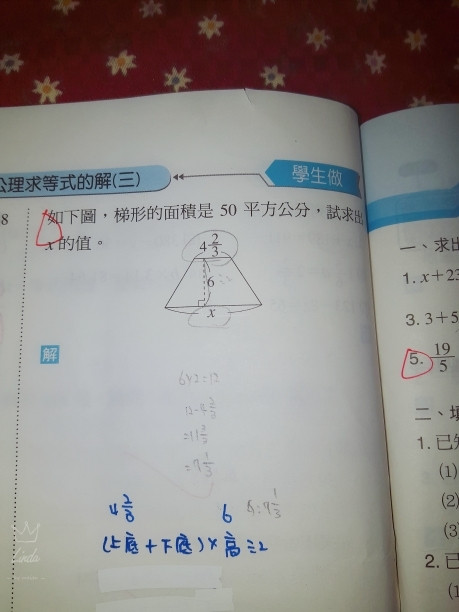 公理求等式的解(三)
學生做
8
如下圖，梯形的面積是 50 平方公分，試求出
x 的值。
4 2/3
6
x
解
6×2=12
=7 1/3
4 2/3
6
(上底+下底)×高÷2
一、求出
1. x+23
3. 3+5
5. 19/5
二、填
1. 已知
(1)
(2)
(3)
2. 已
(1
Linda